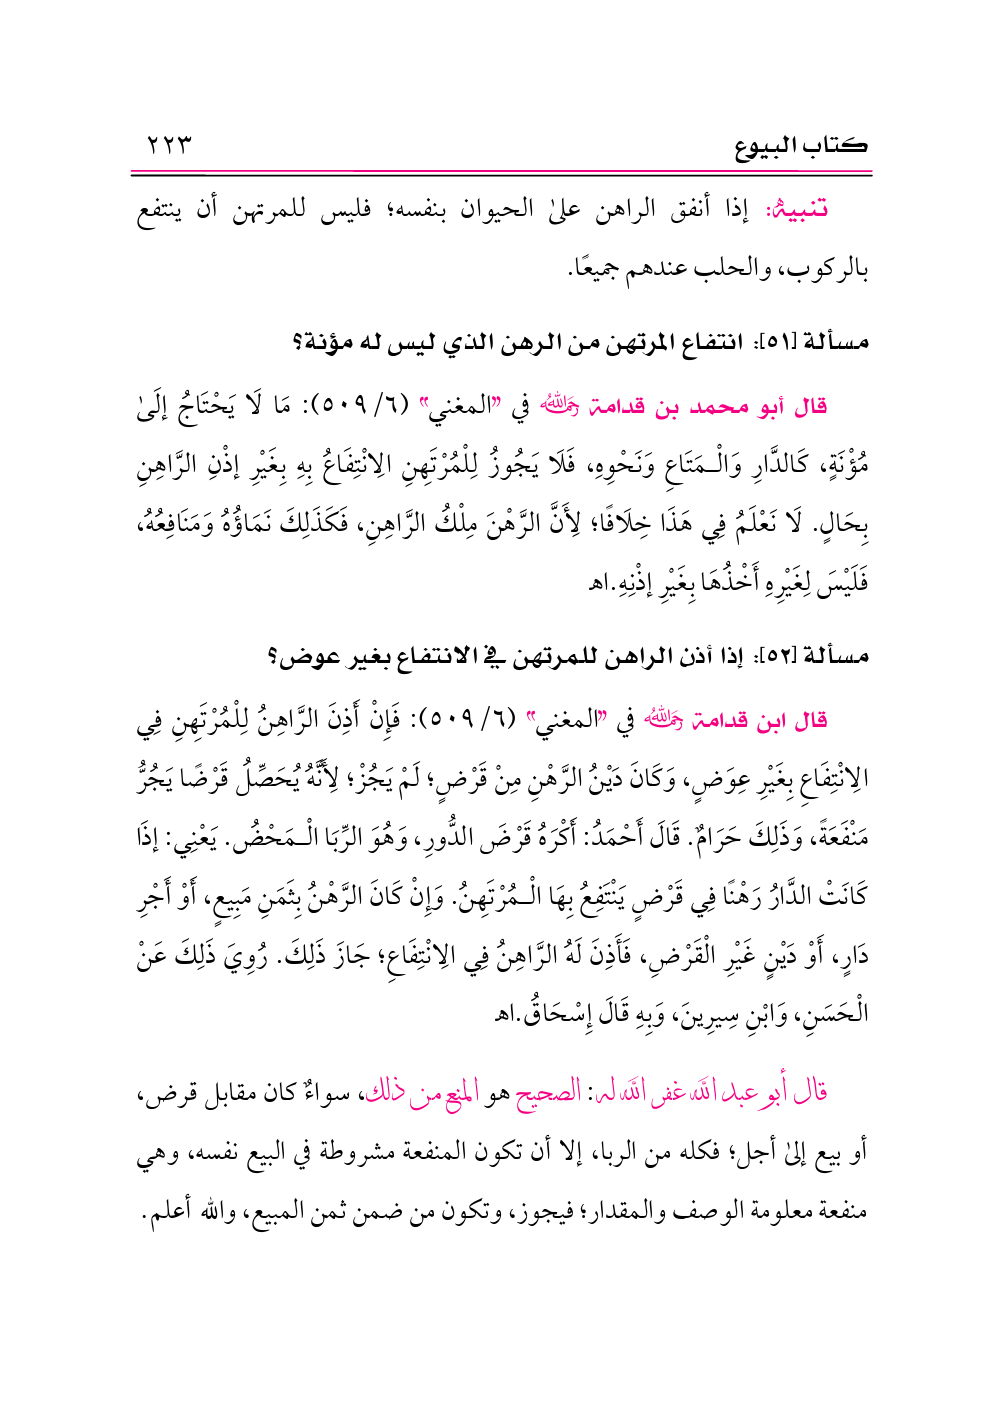 كتاب البيوع ٢٢٣
تنبيهٌ: إذا أنفق الراهن علىٰ الحيوان بنفسه؛ فليس للمرتهن أن ينتفع
بالركوب، والحلب عندهم جميعًا.
مسألة [٥١]: انتفاع المرتهن من الرهن الذي ليس له مؤنة؟
قال أبو محمد بن قدامة رحمه الله في "المغني" (٦/ ٥٠٩): مَا لَا يَحْتَاجُ إلَىٰ
مُؤْنَةٍ، كَالدَّارِ وَالْـمَتَاعِ وَنَحْوِهِ، فَلَا يَجُوزُ لِلْمُرْتَهِنِ الِانْتِفَاعُ بِهِ بِغَيْرِ إذْنِ الرَّاهِنِ
بِحَالٍ. لَا نَعْلَمُ فِي هَذَا خِلَافًا؛ لِأَنَّ الرَّهْنَ مِلْكُ الرَّاهِنِ، فَكَذَلِكَ نَمَاؤُهُ وَمَنَافِعُهُ،
فَلَيْسَ لِغَيْرِهِ أَخْذُهَا بِغَيْرِ إذْنِهِ.اهـ
مسألة [٥٢]: إذا أذن الراهن للمرتهن في الانتفاع بغير عوض؟
قال ابن قدامة رحمه الله في "المغني" (٦/ ٥٠٩): فَإِنْ أَذِنَ الرَّاهِنُ لِلْمُرْتَهِنِ فِي
الِانْتِفَاعِ بِغَيْرِ عِوَضٍ، وَكَانَ دَيْنُ الرَّهْنِ مِنْ قَرْضٍ؛ لَمْ يَجُزْ؛ لِأَنَّهُ يُحَصِّلُ قَرْضًا يَجُرُّ
مَنْفَعَةً، وَذَلِكَ حَرَامٌ. قَالَ أَحْمَدُ: أَكْرَهُ قَرْضَ الدُّورِ، وَهُوَ الرِّبَا الْـمَحْضُ. يَعْنِي: إذَا
كَانَتْ الدَّارُ رَهْنًا فِي قَرْضٍ يَنْتَفِعُ بِهَا الْـمُرْتَهِنُ. وَإِنْ كَانَ الرَّهْنُ بِثَمَنِ مَبِيعٍ، أَوْ أَجْرِ
دَارٍ، أَوْ دَيْنٍ غَيْرِ الْقَرْضِ، فَأَذِنَ لَهُ الرَّاهِنُ فِي الِانْتِفَاعِ؛ جَازَ ذَلِكَ. رُوِيَ ذَلِكَ عَنْ
الْحَسَنِ، وَابْنِ سِيرِينَ، وَبِهِ قَالَ إِسْحَاقُ.اهـ
قال أبو عبد الله غفر الله له: الصحيح هو المنع من ذلك، سواءٌ كان مقابل قرض،
أو بيع إلىٰ أجل؛ فكله من الربا، إلا أن تكون المنفعة مشروطة في البيع نفسه، وهي
منفعة معلومة الوصف والمقدار؛ فيجوز، وتكون من ضمن ثمن المبيع، والله أعلم.